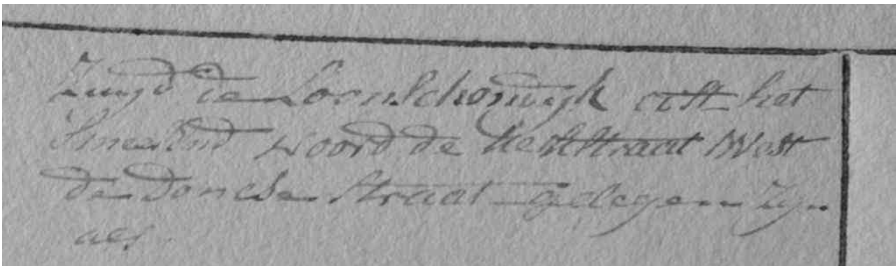 Zuyd de Loonschendyk oost het
Smeelend Noord de Kerkstraat West
de donckestraat gelegen Zyn
als